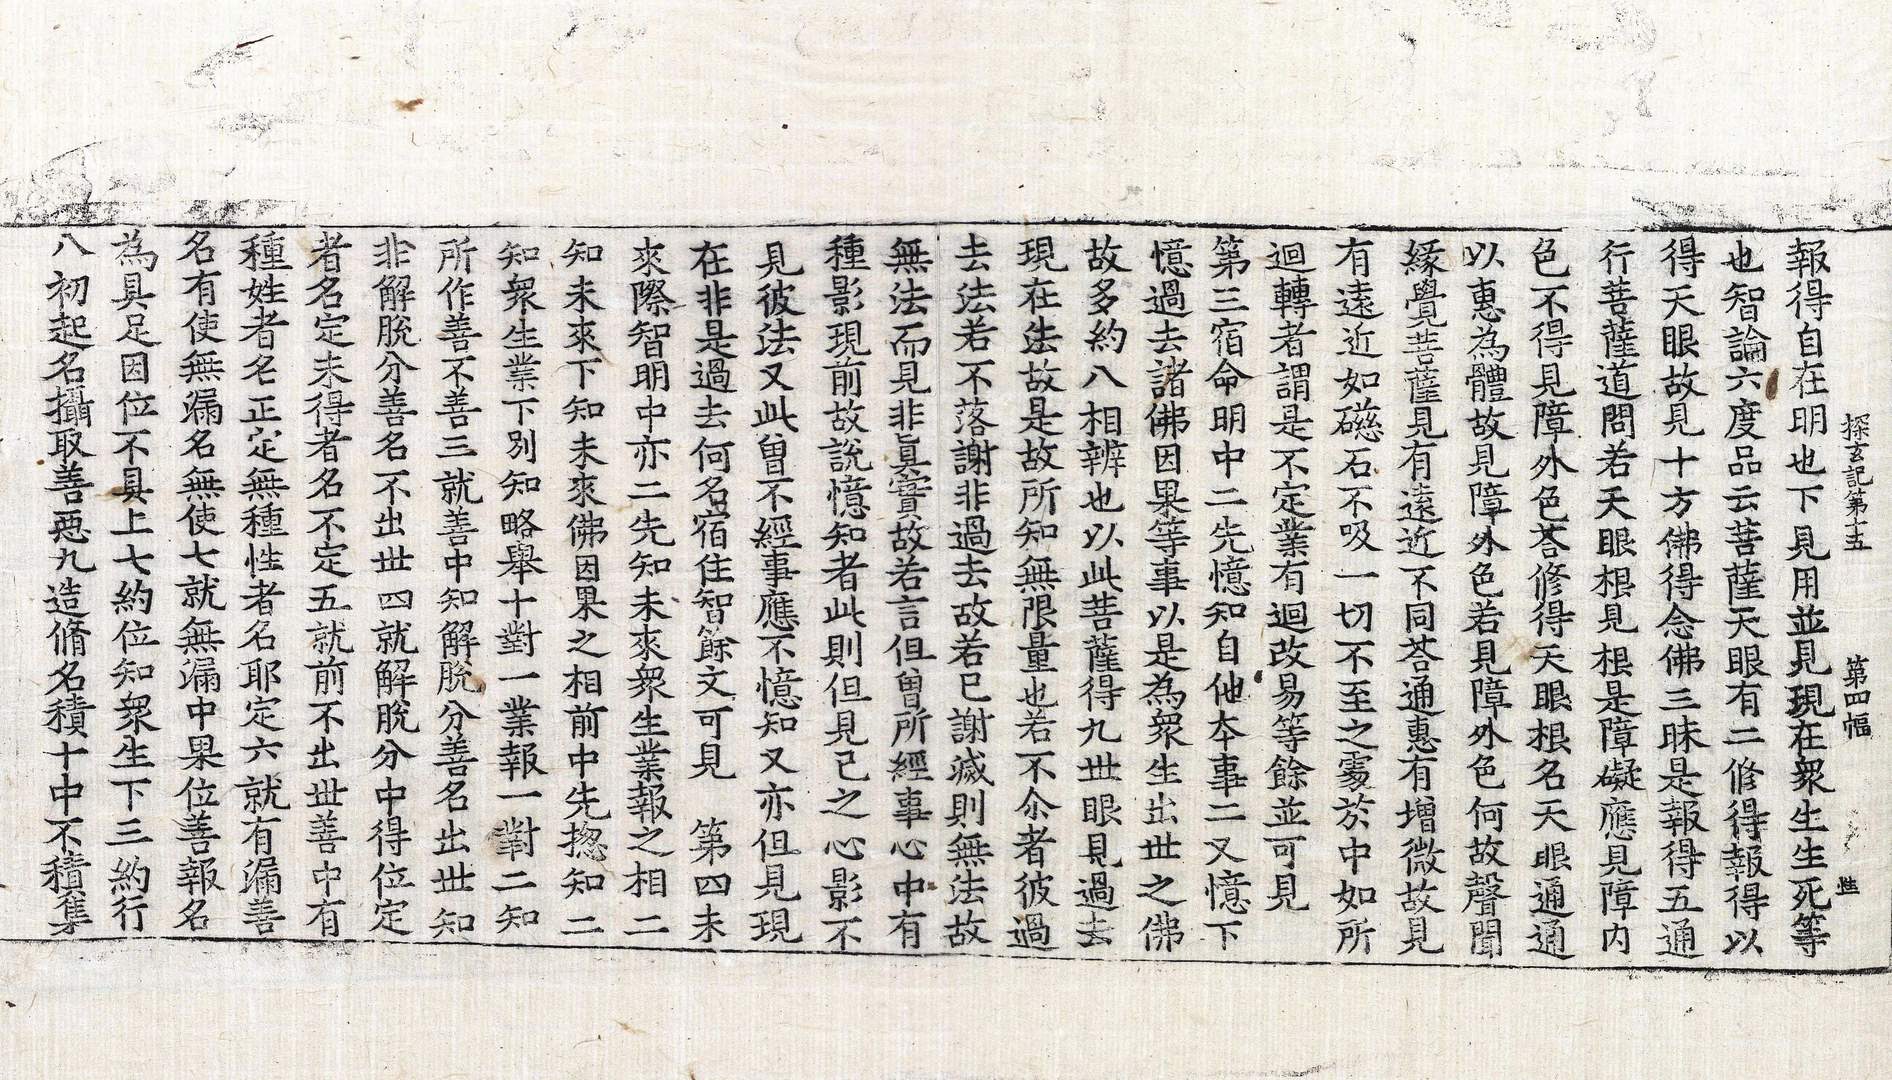 探玄記第十五　第四幅　性
報得自在明也下見用並見現在衆生生死等
也智論六度品云菩薩天眼有二修得報得以
得天眼故見十方佛得念佛三昧是報得五通
行菩薩道問若天眼根見根是障礙應見障内
色不得見障外色荅修得天眼根名天眼通通
以惠為體故見障外色若見障外色何故聲聞
緣覺菩薩見有遠近不同荅通惠有增微故見
有遠近如磁石不吸一切不至之䖏於中如所
迴轉者謂是不定業有迴改易等餘並可見
第三宿命明中二先憶知自他本事二又憶下
憶過去諸佛因果等事以是為衆生出世之佛
故多約八相辨也以此菩薩得九世眼見過去
現在法故是故所知無限量也若不尒者彼過
去法若不落謝非過去故若已謝滅則無法故
無法而見非眞實故若言但曽所經事心中有
種影現前故說憶知者此則但見己之心影不
見彼法又此曽不經事應不憶知又亦但見現
在非是過去何名宿住智餘文可見　第四未
來際智明中亦二先知未來衆生業報之相二
知未來下知未來佛因果之相前中先揔知二
知衆生業下別知略舉十對一業報一對二知
所作善不善三就善中知解脫分善名出世知
非解脫分善名不出世四就解脫分中得位定
者名定未得者名不定五就前不出世善中有
種姓者名正定無種性者名耶定六就有漏善
名有使無漏名無使七就無漏中果位善報名
為具足因位不具上七約位知衆生下三約行
八初起名攝取善惡九造脩名積十中不積集